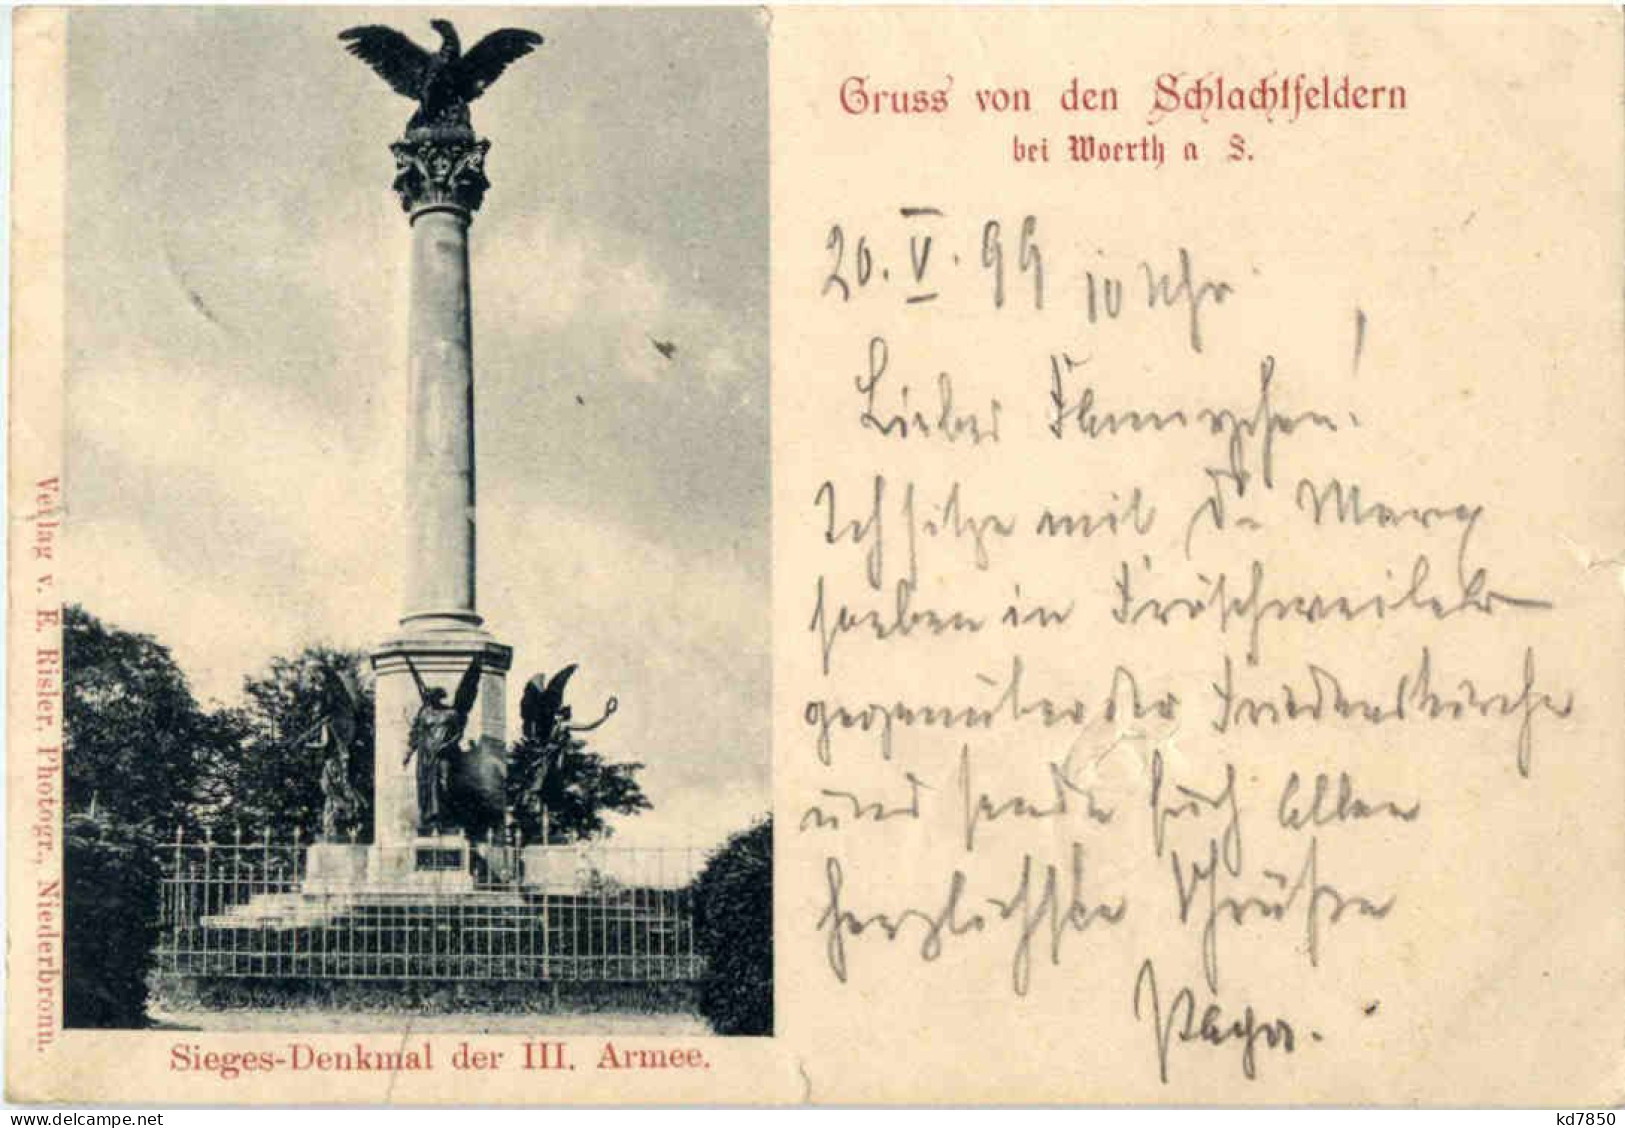 Gruss von den Schlachtfeldern
bei Woerth a S.
20. V. 99 10 Uhr
Liebes
Ich sitze mit Dr. Marx
soeben in Fröschweiler
gegenüber der Friedenskirche
und sende Euch allen
herzlichste Grüße
Papa.
Verlag v. E. Risler, Photogr., Niederbronn.
Sieges-Denkmal der III. Armee.
kd7850
delcampe.net